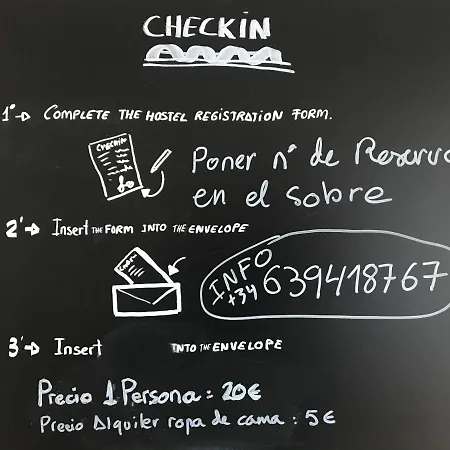 CHECKIN
1º→ COMPLETE THE HOSTEL REGISTRATION FORM.
CHECKIN
Poner nº de Reserva
en el sobre
2º→ Insert THE FORM INTO THE ENVELOPE
INFO
+34 639418767
3º→ Insert INTO THE ENVELOPE
Precio 1 Persona: 20€
Precio Alquiler ropa de cama: 5€